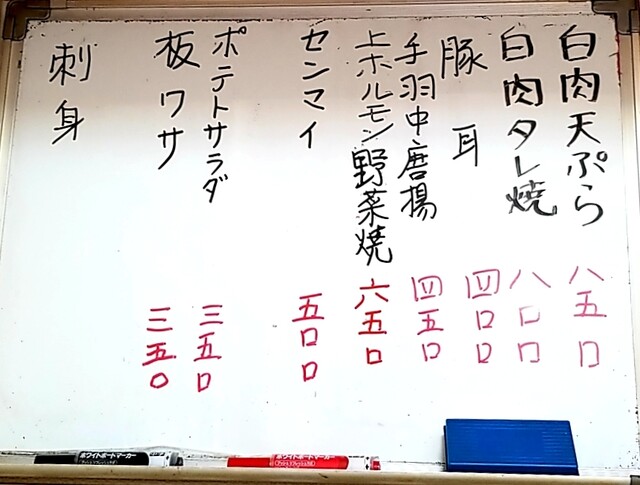 白肉天ぷら 八五〇
白肉タレ焼 八〇〇
豚耳 四〇〇
手羽中唐揚 四五〇
上ホルモン野菜焼 六五〇
センマイ 五〇〇
ポテトサラダ 三五〇
板ワサ 三五〇
刺身
ホワイトボードマーカー
ホワイトボードマーカー